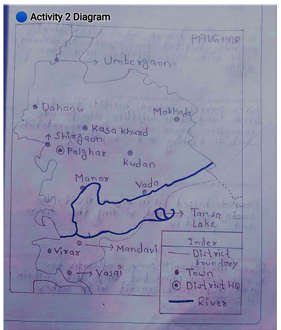 Activity 2 Diagram
PALGHAR
Umbergaon
Dahanu
Mokhada
Kasa khurd
Shirgaon
Palghar
Kudan
Manor
Vada
Tansa
Lake
Mandavi
Virar
Vasai
Index
District
boundary
Town
District HQ
River